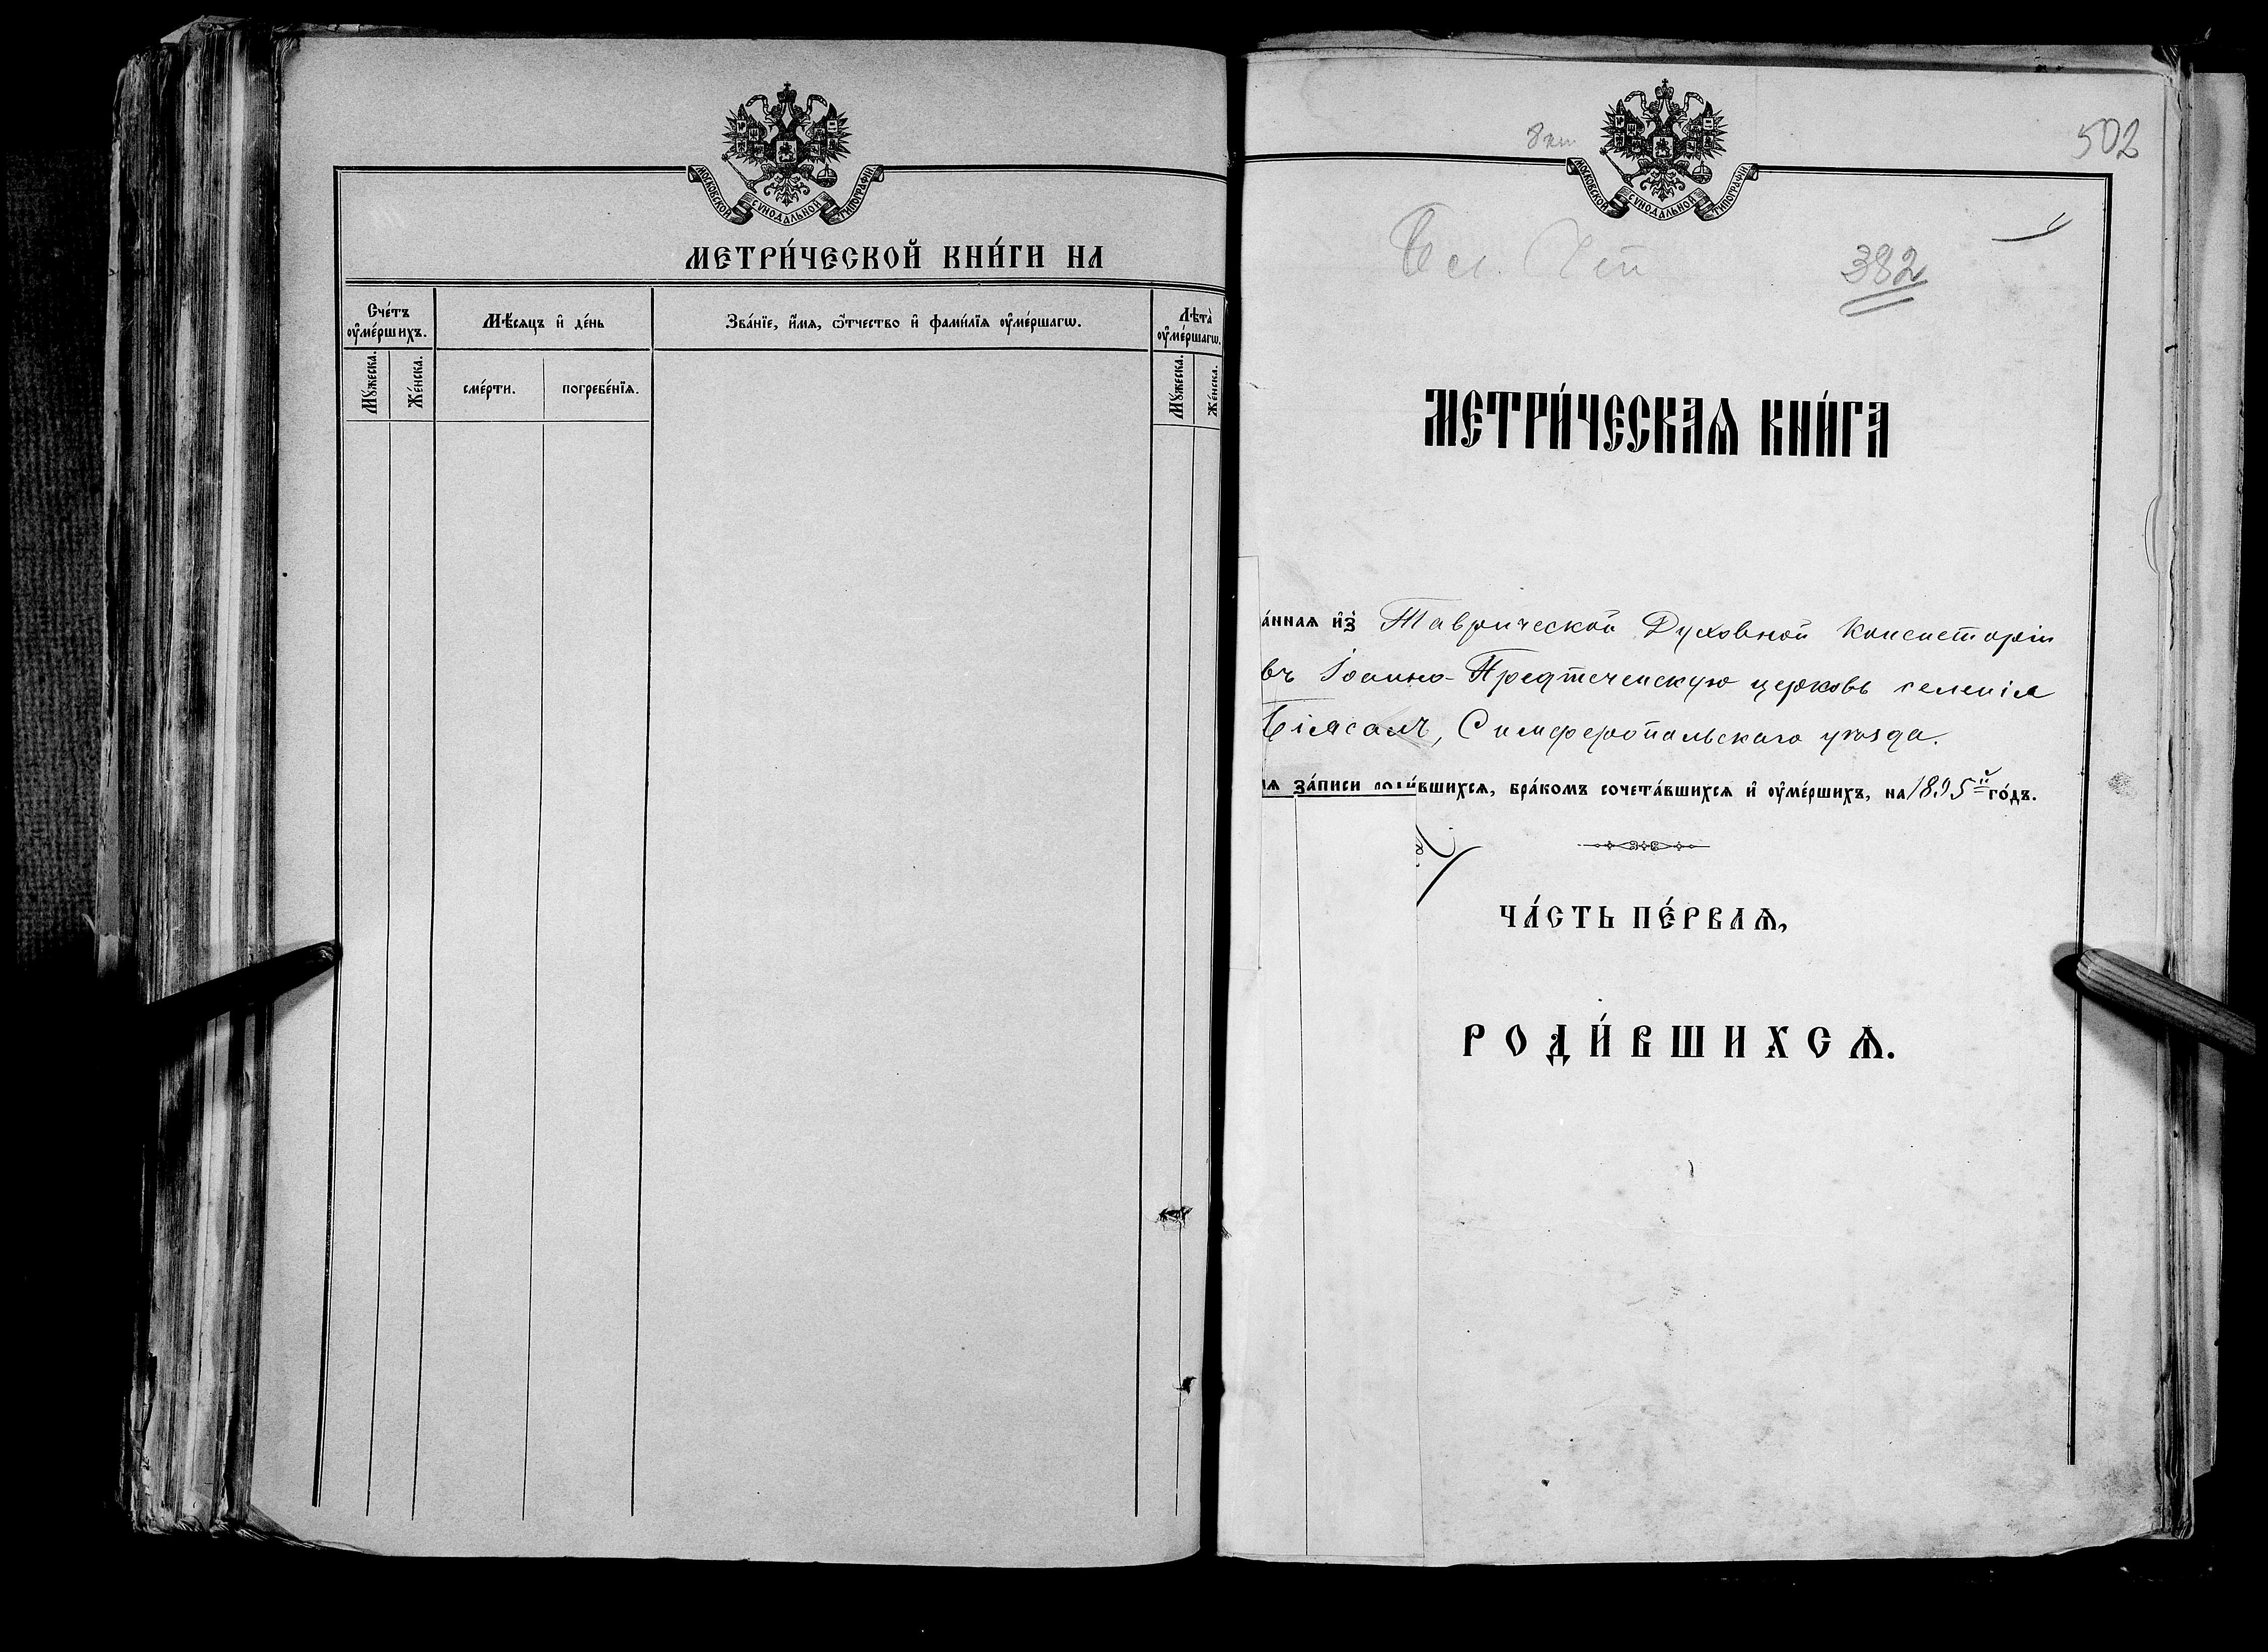 МОСКОВСКОЙ СѴНОДАЛЬНОЙ ТИПОГРАФІИ
МЕТРИ́ЧЕСКОЙ КНИ́ГИ НА
Сче́тъ ᲂу҆ме́ршихъ.
Мѣ́сяцъ и҆ де́нь
Зва́нїе, и҆́мѧ, ѻ҆́тчество и҆ фами́лїѧ ᲂу҆ме́ршагѡ.
Лѣта̀ ᲂу҆ме́ршагѡ.
Мꙋ́жеска.
Же́нска.
сме́рти.
погребе́нїѧ.
Мꙋ́жеска.
Же́нска.
502
МОСКОВСКОЙ СѴНОДАЛЬНОЙ ТИПОГРАФІИ
382
МЕТРИ́ЧЕСКАѦ КНИ́ГА
а́ннаѧ и҆з̾ Таврической Духовной Консисторіи
въ Іоанно-Предтеченскую церковь селенія
Біясалъ, Симферопольскаго уѣзда.
ѧ за́писи роди́вшихсѧ, бра́комъ сочета́вшихсѧ и҆ ᲂу҆ме́ршихъ, на 1895й го́дъ.
ЧА́СТЬ ПЕ́РВАѦ,
РОДИ́ВШИХСѦ.